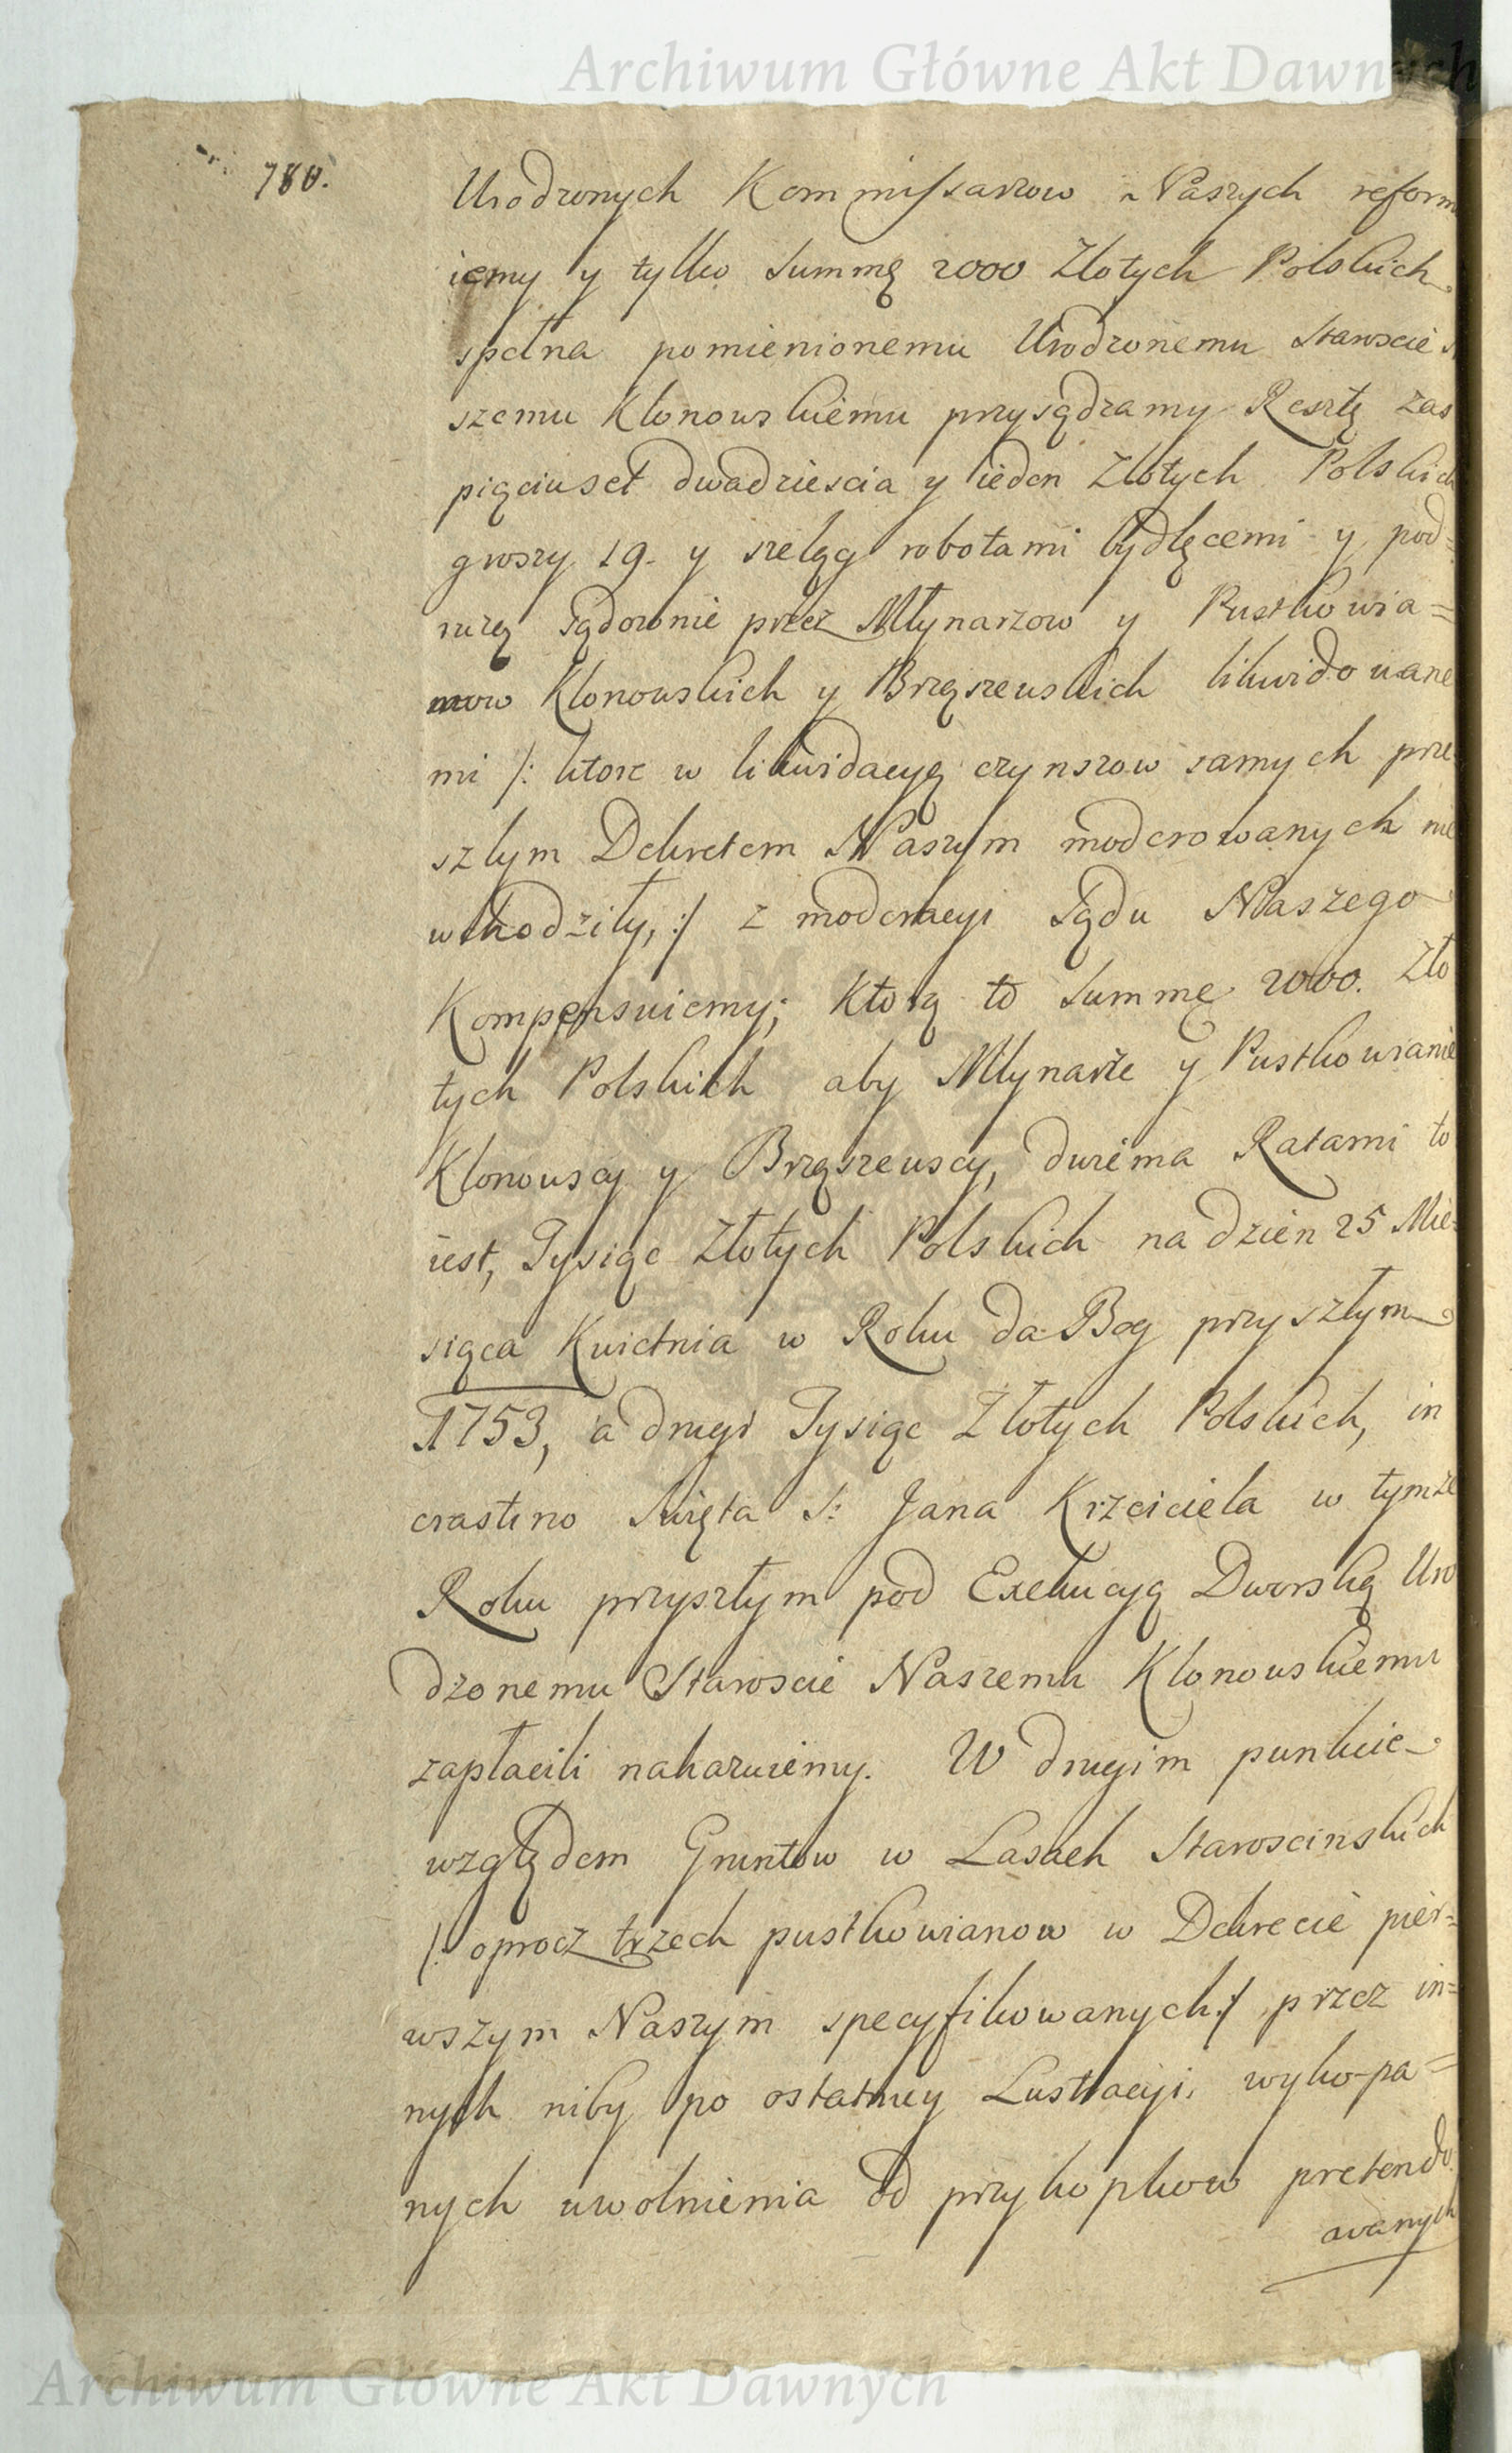 Archiwum Główne Akt Dawnych
780.
Urodzonych Kommissarzow Naszych reform
iemy y tylko Summę 2000 Złotych Polskich
spełna pomienionemu Urodzonemu Staroscie
szemu Klonowskiemu przysądzamy Resztę zas
pięciuset dwadziescia y ieden Złotych Polskich
groszy 19. y szeląg robotami bydlęcemi y pod=
rużą Sądownie przez Młynarzow y Pustkowia=
now Klonowskich y Brzęszewskich likwidowane
mi /: ktore w likwidacyę czynszow samych prze
szłym Dekretem Naszym moderowanych nie
wchodziły, :/ z moderacyi Sądu Naszego
Kompensuiemy; Ktorą to Summę 2000. Zło
tych Polskich aby Młynarze y Pustkowianie
Klonowscy y Brzęszewscy, dwiema Ratami to
iest, Tysiąc Złotych Polskich na dzien 25 Mie=
siąca Kwietnia w Roku da Bog przyszłym
1753, a drugi Tysiąc Złotych Polskich, in
crastino Swięta S: Jana Krzciciela w tymze
Roku przyszłym pod Exekucyą Dworską Uro
dzonemu Staroscie Naszemu Klonowskiemu
zapłacili nakazuiemy. W drugim punkcie
względem Gruntow w Lasach Staroscinskich
/: oprocz trzech pustkowianow w Dekrecie pier=
wszym Naszym specyfikowanych :/ przez in=
nych niby po ostatney Lustracyi, wykopa=
nych uwolnienia od przykopkow pretendo
wanych
Archiwum Główne Akt Dawnych